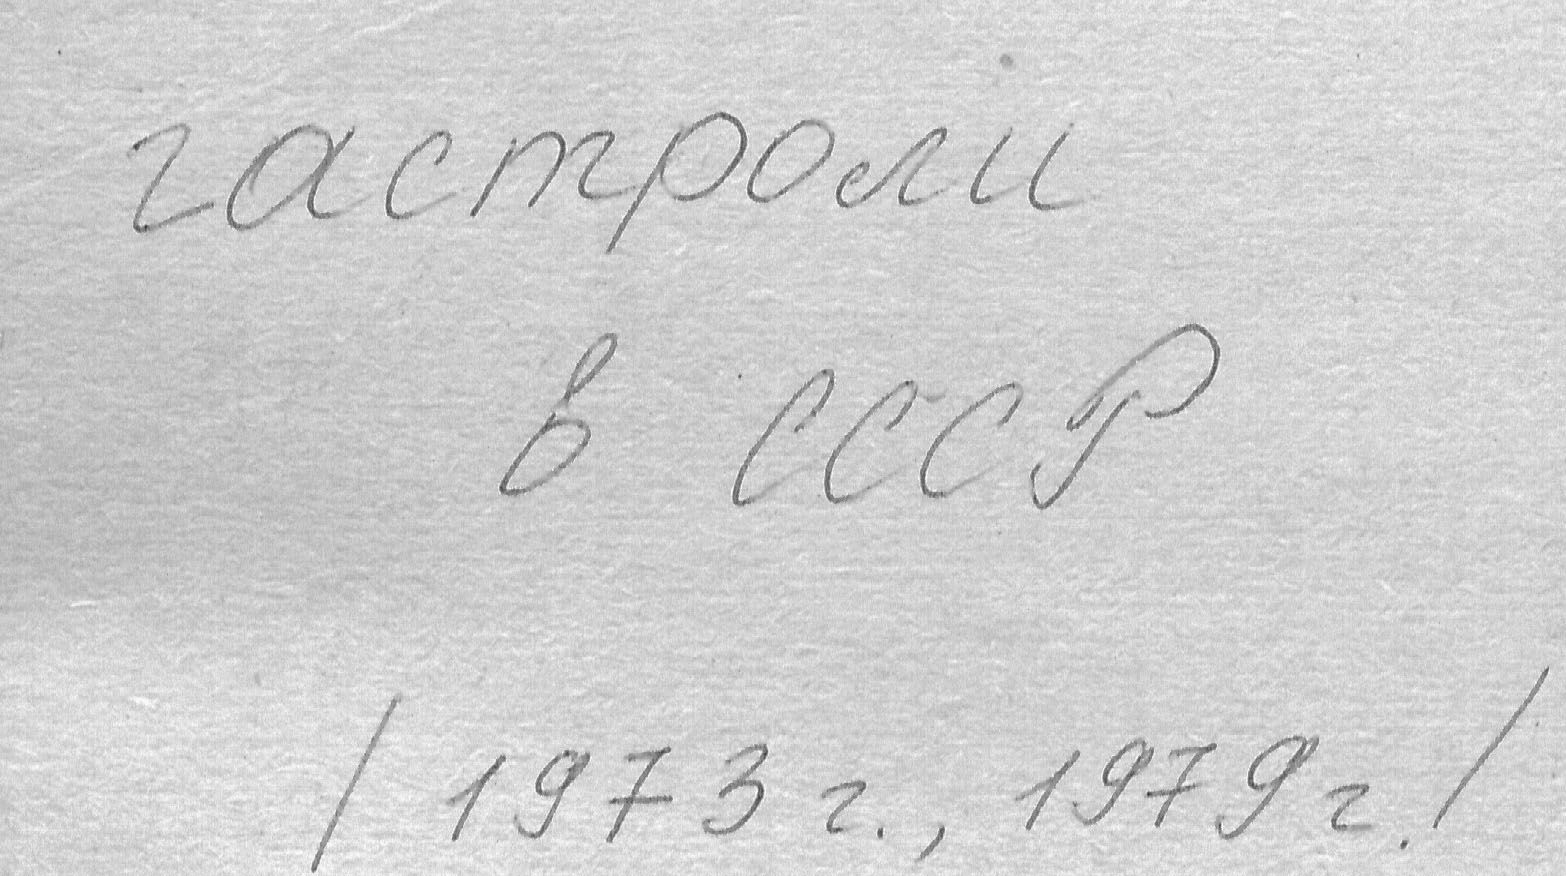 гастроли
в СССР
/ 1973 г., 1979 г. /